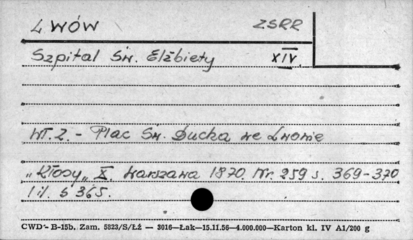 LWÓW ZSRR
Szpital Św. Elżbiety XIV.
Wł. 2. - Plac Św. Ducha we Lwowie
"Kłosy" X. Warszawa 1870. Nr. 259 s. 369-370
il. s 365.
CWD - B-15b. Zam. 5823/S/ŁŻ — 3016—Łak—15.11.56—4.000.000—Karton kl. IV A1/200 g